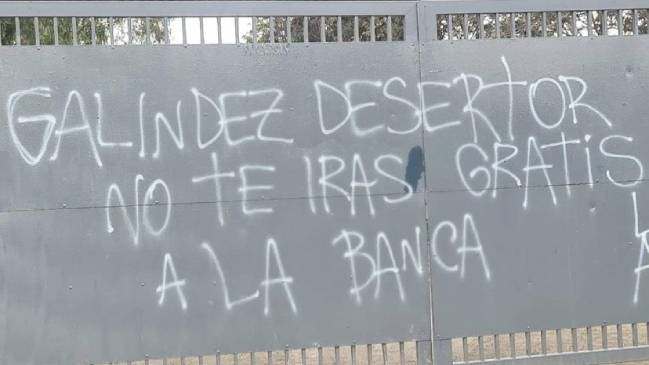 GALINDEZ DESERTOR
NO TE IRAS GRATIS
A LA BANCA